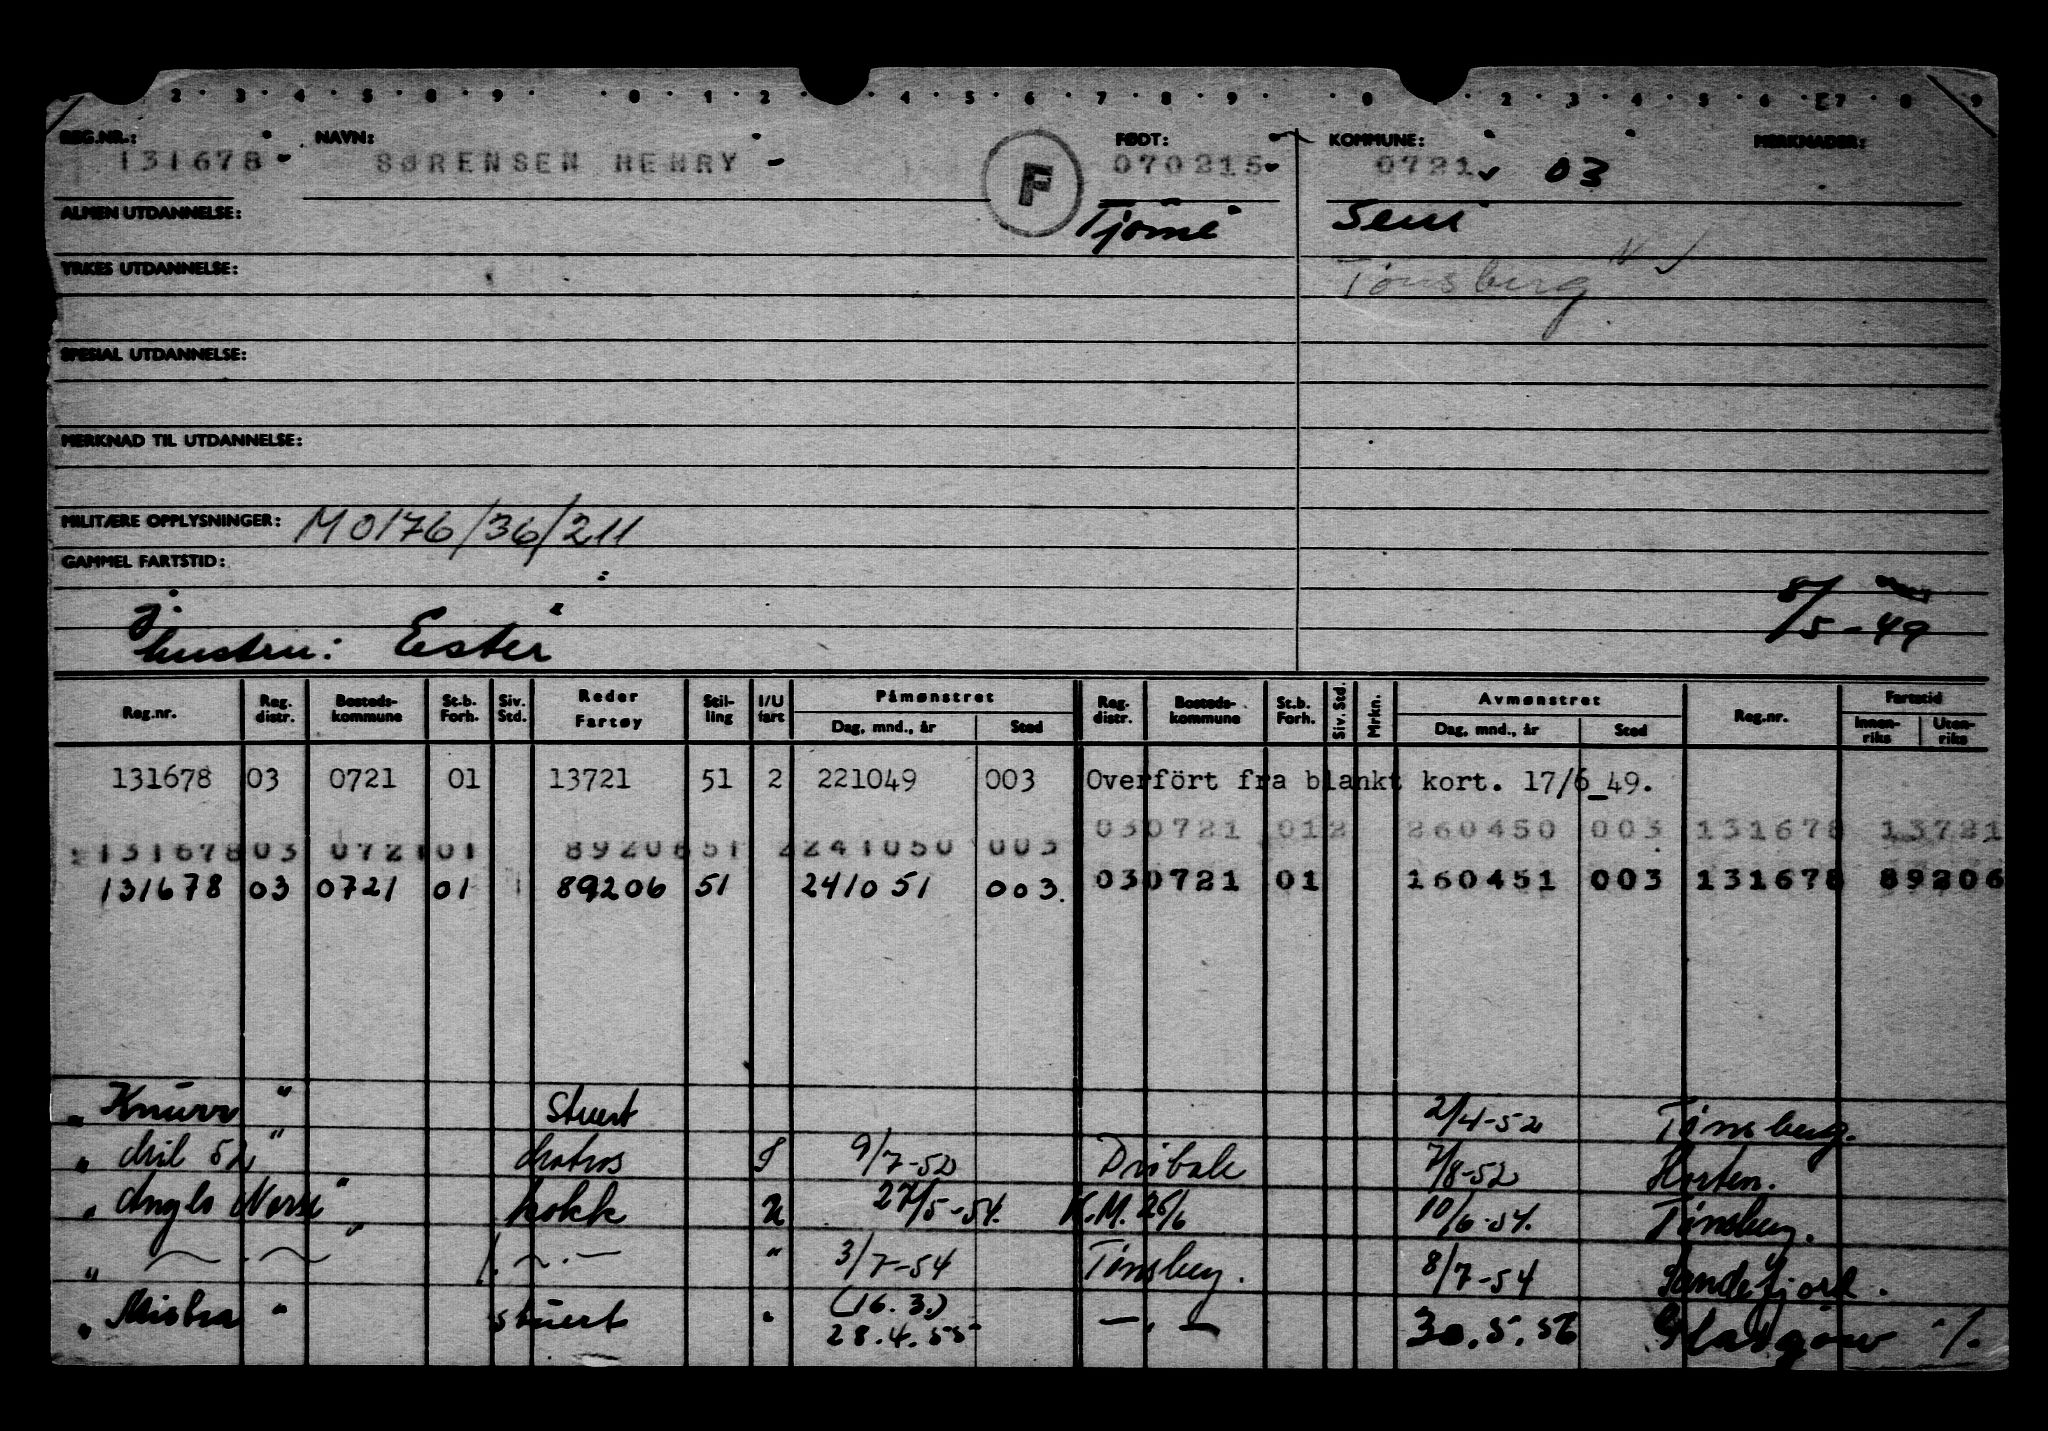 2 . 3 . 4 . 5 . 6 . 9 . 0 . 1 . 2 . 4 . 5 . 6 . 7 . 8 . 9 . 0 . 2 . 3 . 4 . 5 . 6 . 7 . 8 . 9
REG.NR.: NAVN: FØDT: KOMMUNE: MERKNADER:
131678 SØRENSEN HENRY F 070215 0721 03
ALMEN UTDANNELSE: Tjøme Sem
YRKES UTDANNELSE: Tønsberg
SPESIAL UTDANNELSE:
MERKNAD TIL UTDANNELSE:
MILITÆRE OPPLYSNINGER: M 0176/36/211
GAMMEL FARTSTID:
8/5-49
hustru: Ester
Reg.nr. Reg. distr. Bosteds-kommune St.b. Forh. Siv. Std. Reder Fartøy Stil-ling I/U fart Påmønstret Dag, mnd., år Sted Reg. distr. Bosteds-kommune St.b. Forh. Siv. Std. Mrkn. Avmønstret Dag, mnd., år Sted Reg.nr. Fartstid Innen-riks Uten-riks
131678 03 0721 01 13721 51 2 221049 003 Overfört fra blankt kort. 17/6_49.
030721 012 260450 003 131678 13721
131678 03 0721 01 89206 51 2 241050 003
131678 03 0721 01 89206 51 241051 003. 030721 01 160451 003 131678 89206
" Knurr " Stuert 2/4-52 Tønsberg.
" Mil 52 " Matros I 9/7-52 Drøbak 7/8-52 Horten.
" Anglo Norse " kokk U 27/5-54. K.M. 26/6 10/6-54. Tønsberg.
" — . — " — . — " 3/7-54 Tønsberg. 8/7-54 Sandefjord.
" " stuert " (16.3.) 28.4.55 — " — 30.5.56 Glasgow %.